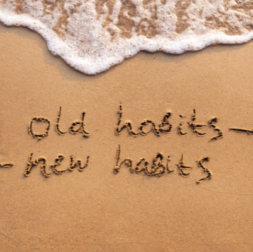 old habits -
- new habits